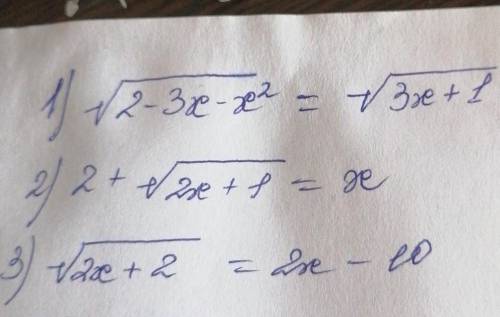 1) √(2-3x-x²) = √(3x+1)
2) 2+√(2x+1) = x
3) √(2x+2) = 2x-10